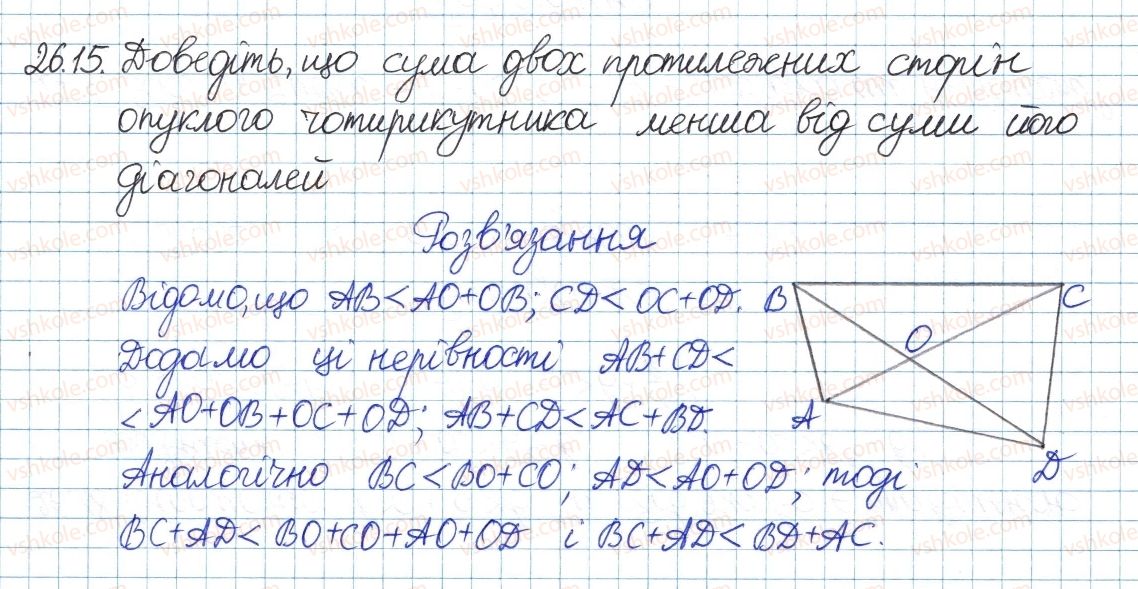 26.15. Доведіть, що сума двох протилежних сторін
опуклого чотирикутника менша від суми його
діагоналей
Розв'язання
Відомо, що AB < AO + OB; CD < OC + OD.
Додамо ці нерівності AB + CD <
< AO + OB + OC + OD; AB + CD < AC + BD.
Аналогічно BC < BO + CO; AD < AO + OD; тоді
BC + AD < BO + CO + AO + OD і BC + AD < BD + AC.
B
C
O
A
D
vshkole.com